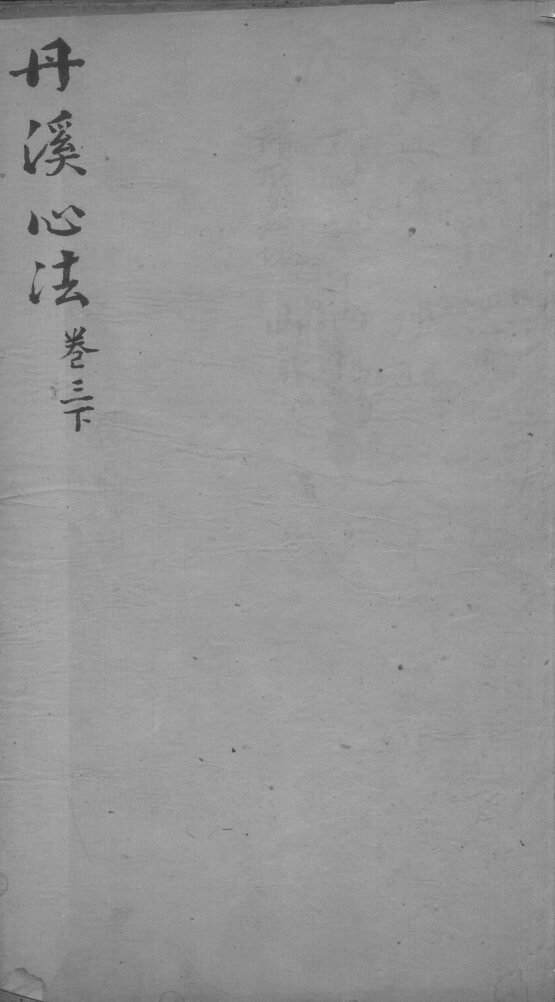 丹溪心法 卷三下